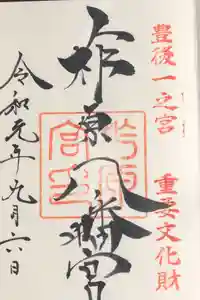 豊後一之宮　重要文化財
柞原八幡宮
令和元年九月六日